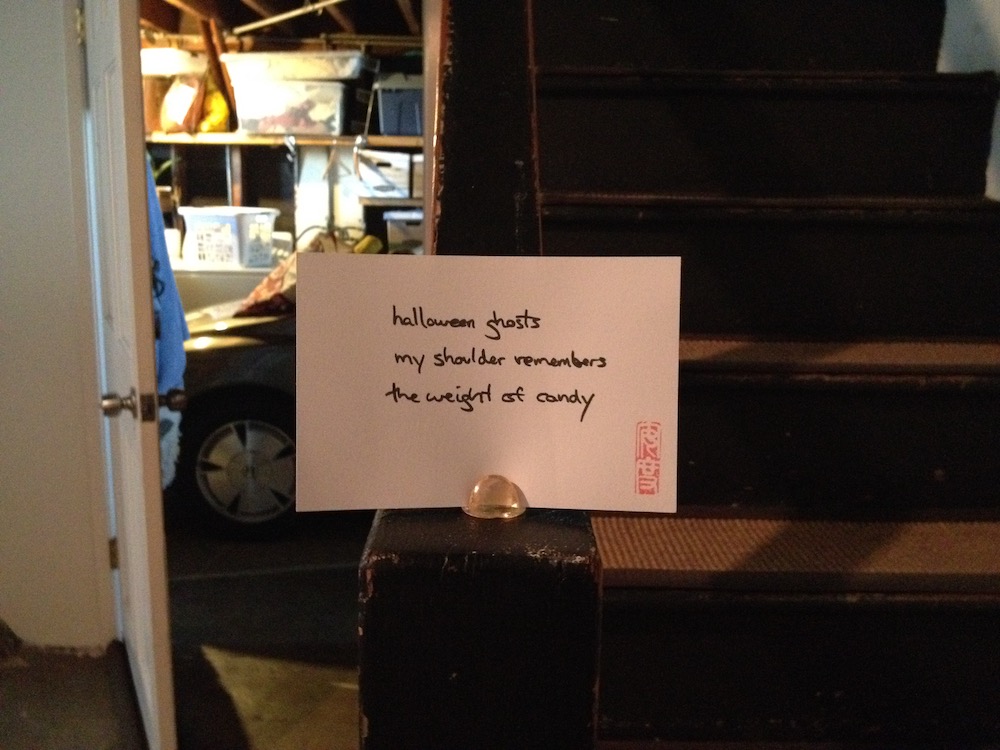 halloween ghosts
my shoulder remembers
the weight of candy